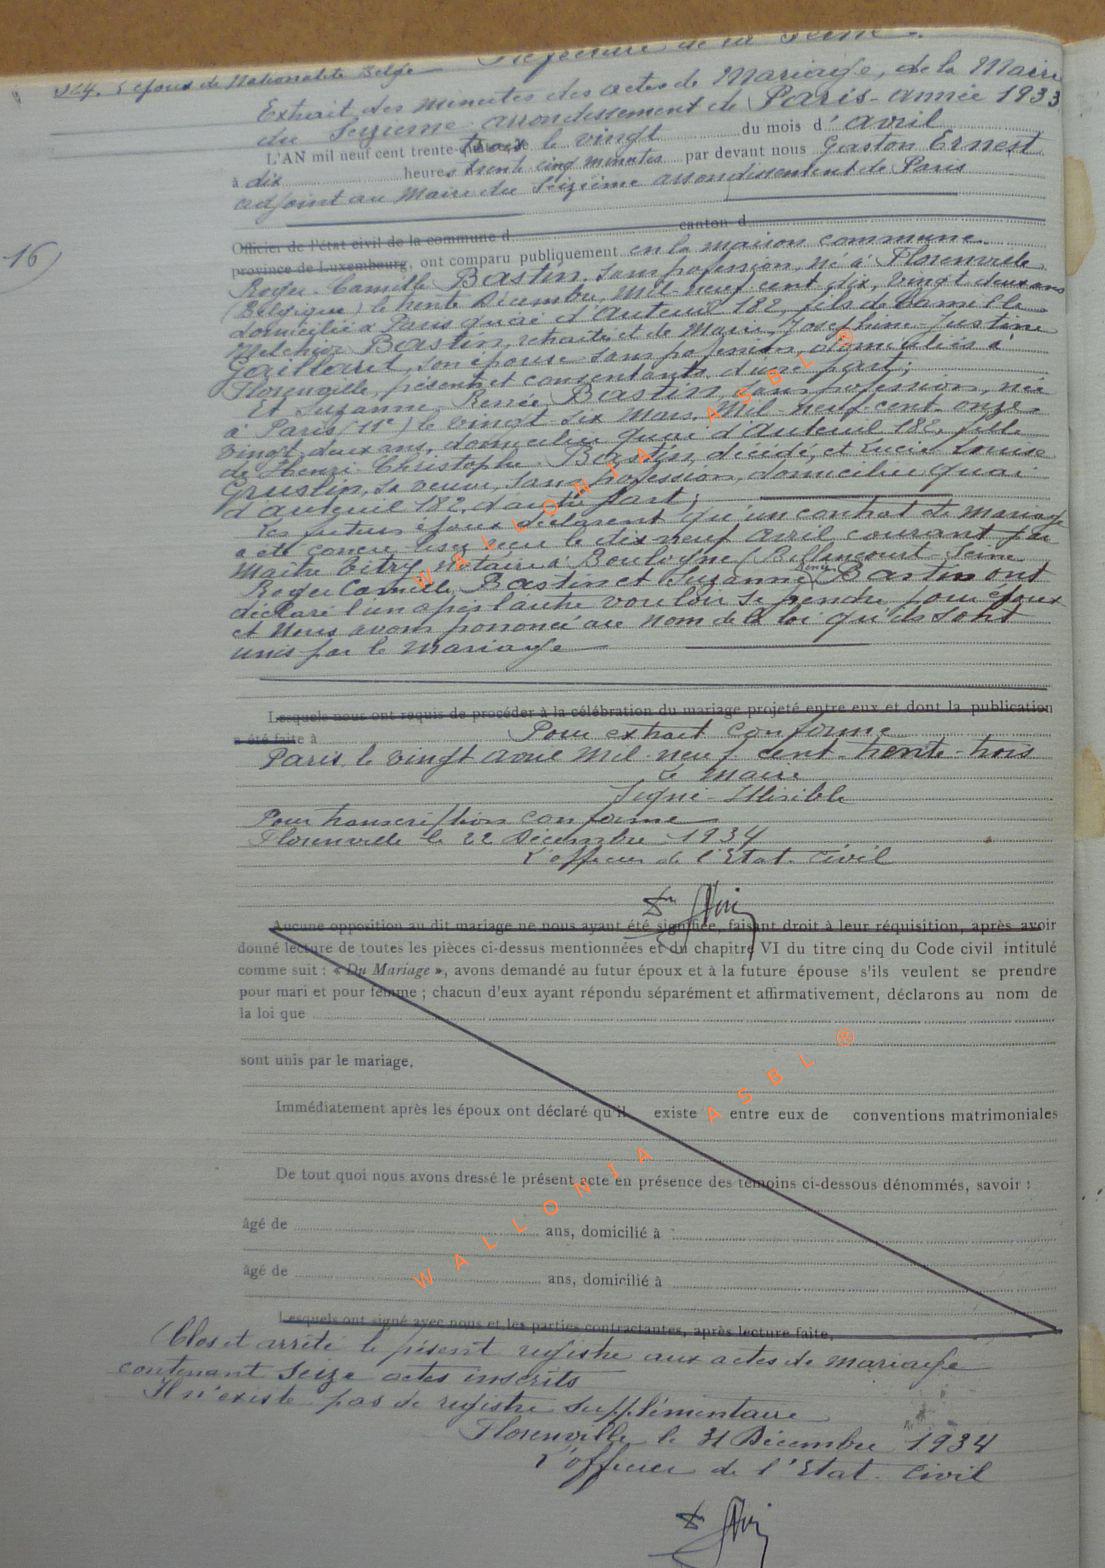 Préfecture de la Seine.
N.B. L'époux de Nationalité Belge
Extrait des minutes des actes de Mariage, de la Mairie
du Seizième arrondissement de Paris - année 1933
L'AN mil neuf cent trente trois le vingt du mois d'avril
à dix heures trente cinq minutes par devant nous Gaston Ernest
adjoint au Maire du Seizième arrondissement de Paris
Officier de l'état civil de la commune d canton d
province de Luxembourg, ont comparu publiquement en la maison commune.
16
Roger Camille Bastin sans profession, né à Florenville
(Belgique) le trente Décembre, Mil neuf cent dix, vingt deux ans
domicilié à Paris quai d'Auteuil 182, fils de Camille
Melchior Bastin, retraité et de Marie Joséphine Justine
Gaillard, son épouse sans profession, domiciliés à
Florenville, présents et consentants d'une part;
Et Suzanne, Renée Bastin, sans profession, née
à Paris (11e) le vingt six Mars, Mil neuf cent onze
vingt deux ans, domiciliée quai d'Auteuil 182, fille
de Henri Christophe Bastin, décédé, et Lucie Louise
sa veuve, sans profession, domiciliée quai
d'Auteuil 182, d'autre part;
Les futurs époux déclarent qu'un contrat de mariage
a été le dix neuf avril courant par
Maître notaire à Boulogne (Billancourt Seine
Roger Camille Bastin et Suzanne Renée Bastin ont
déclaré l'un après l'autre vouloir se prendre pour époux
et Nous avons prononcé au nom de la loi qu'ils sont
unis par le mariage
Lesquels nous ont requis de procéder à la célébration du mariage projeté entre eux et dont la publication
a été faite à Pour extrait conforme
Paris, le vingt avril Mil neuf cent trente-trois
Le Maire
Signé - Illisible
Pour transcription conforme
Florenville le 22 Décembre 1934
L'officier de l'Etat-Civil
Aucune opposition au dit mariage ne nous ayant été signifiée, faisant droit à leur réquisition, après avoir
donné lecture de toutes les pièces ci-dessus mentionnées et du chapitre VI du titre cinq du Code civil intitulé
comme suit : « Du Mariage », avons demandé au futur époux et à la future épouse s'ils veulent se prendre
pour mari et pour femme ; chacun d'eux ayant répondu séparément et affirmativement, déclarons au nom de
la loi que
sont unis par le mariage.
Immédiatement après les époux ont déclaré qu'il existe entre eux de conventions matrimoniales
De tout quoi nous avons dressé le présent acte en présence des témoins ci-dessous dénommés, savoir :
âgé de ans, domicilié à
âgé de ans, domicilié à
Lesquels ont signé avec nous et les parties contractantes, après lecture faite.
Clos et arrêté le présent registre aux actes de mariage
contenant Seize actes inscrits
Il n'existe pas de registre supplémentaire
Florenville, le 31 Décembre 1934
L'officier de l'Etat-Civil
WALLONIA ASBL ®
WALLONIA ASBL ®